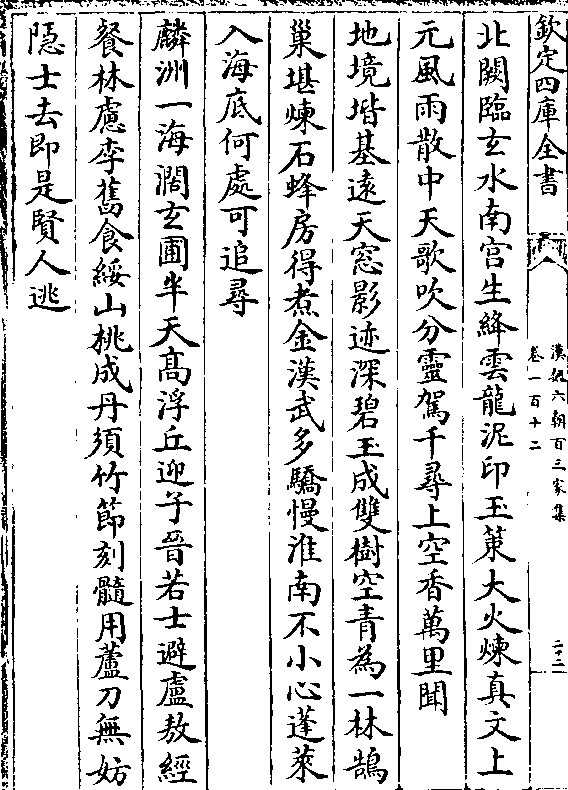 欽定四庫全書
漢魏六朝百三家集
卷一百十二
二十二
北闕臨玄水南宫生絳雲龍泥印玉策大火煉真文上
元風雨散中天歌吹分靈駕千尋上空香萬里聞
地境堦基遠天窓影迹深碧玉成雙樹空青為一林鵠
巢堪煉石蜂房得煮金漢武多驕慢淮南不小心蓬萊
入海底何處可追尋
麟洲一海濶玄圃半天髙浮丘迎子晉若士避盧敖經
餐林慮李舊食綏山桃成丹須竹節刻髓用蘆刀無妨
隠士去即是賢人逃